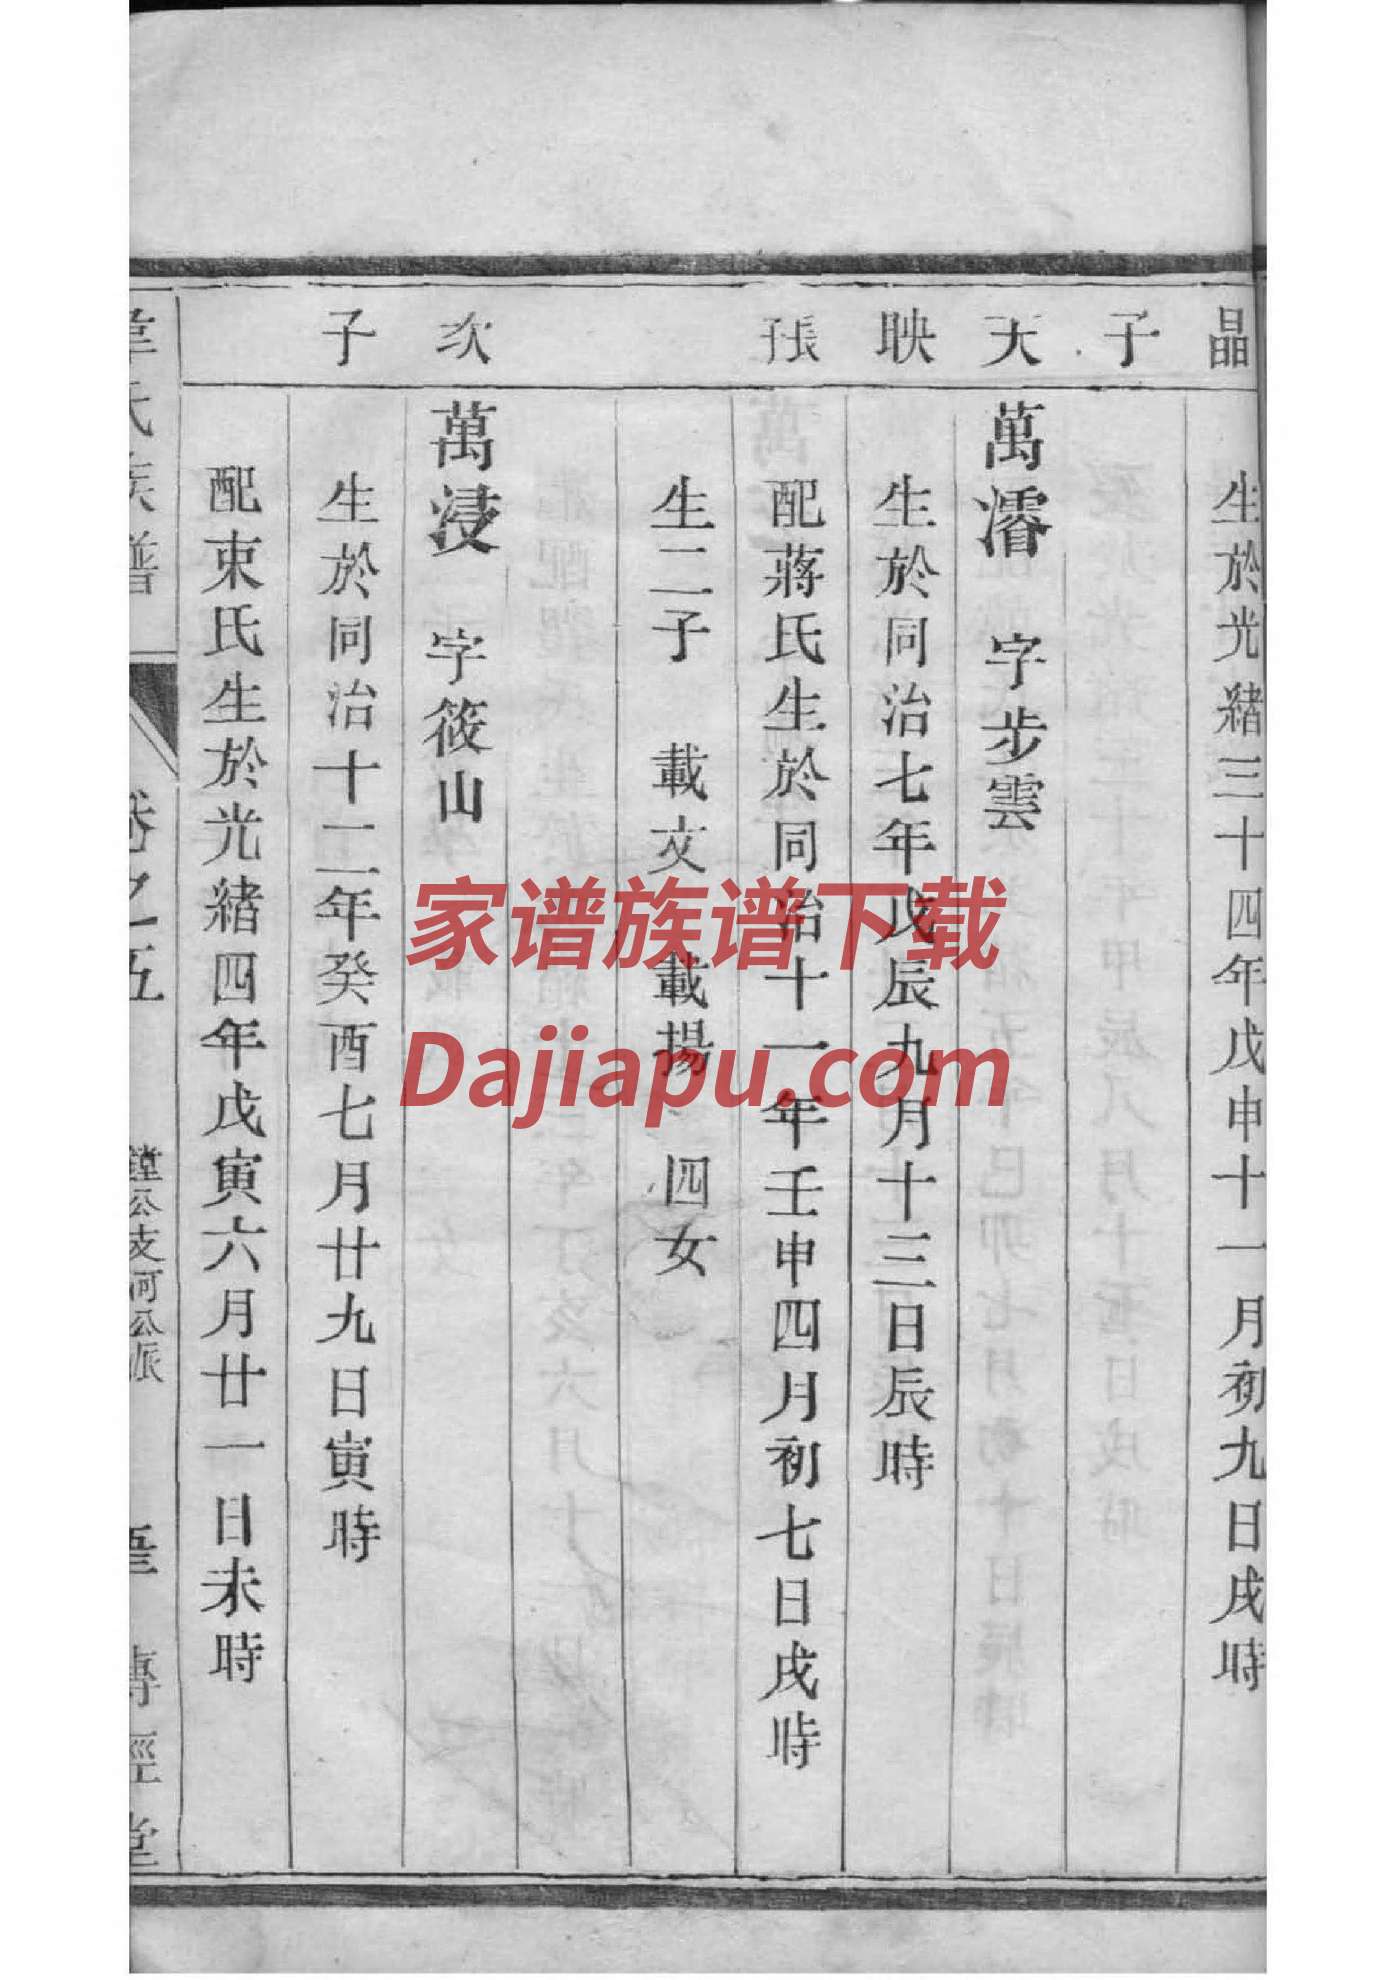 晶 生於光緒三十四年戊申十一月初九日戌時
子
天 萬濬 字步雲
映 生於同治七年戊辰九月十三日辰時
張 配蔣氏生於同治十一年壬申四月初七日戌時
生二子 載文 載揚 四女
次 萬浸 字筱山
子 生於同治十二年癸酉七月廿九日寅時
配束氏生於光緒四年戊寅六月廿一日未時
氏族譜 卷之五 鏜公支河公派 傳經堂
家谱族谱下载
Dajiapu.com